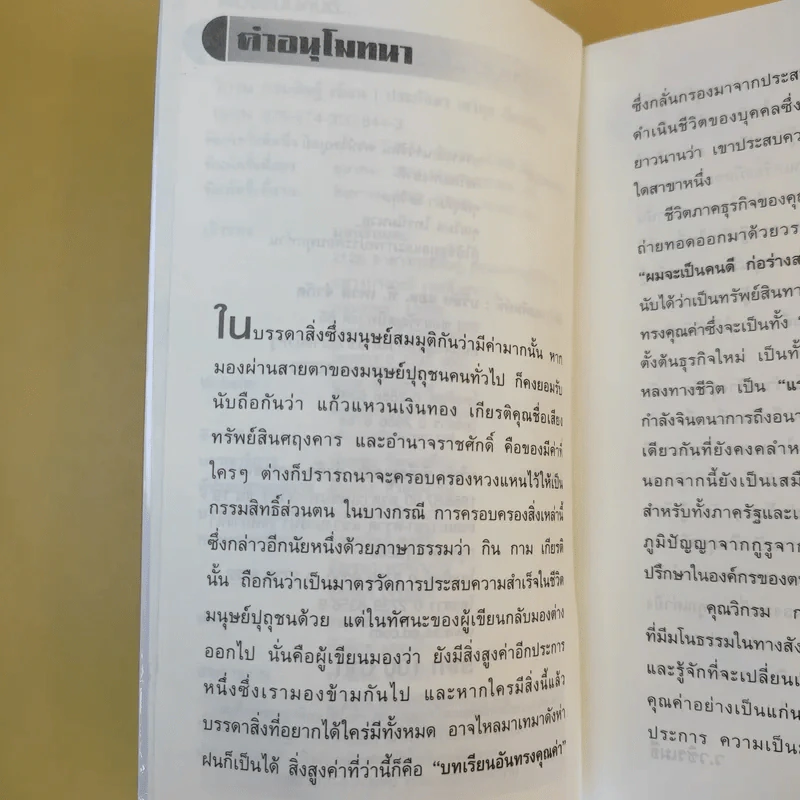 คำอนุโมทนา
ในบรรดาสิ่งซึ่งมนุษย์สมมุติกันว่ามีค่ามากนั้น หาก
มองผ่านสายตาของมนุษย์ปุถุชนคนทั่วไป ก็คงยอมรับ
นับถือกันว่า แก้วแหวนเงินทอง เกียรติคุณชื่อเสียง
ทรัพย์สินศฤงคาร และอำนาจราชศักดิ์ คือของมีค่าที่
ใครๆ ต่างก็ปรารถนาจะครอบครองหวงแหนไว้ให้เป็น
กรรมสิทธิ์ส่วนตน ในบางกรณี การครอบครองสิ่งเหล่านี้
ซึ่งกล่าวอีกนัยหนึ่งด้วยภาษาธรรมว่า กิน กาม เกียรติ
นั้น ถือกันว่าเป็นมาตรวัดการประสบความสำเร็จในชีวิต
มนุษย์ปุถุชนด้วย แต่ในทัศนะของผู้เขียนกลับมองต่าง
ออกไป นั่นคือผู้เขียนมองว่า ยังมีสิ่งสูงค่าอีกประการ
หนึ่งซึ่งเรามองข้ามกันไป และหากใครมีสิ่งนี้แล้ว
บรรดาสิ่งที่อยากได้ใคร่มีทั้งหมด อาจไหลมาเทมาดังห่า
ฝนก็เป็นได้ สิ่งสูงค่าที่ว่านี้ก็คือ “บทเรียนอันทรงคุณค่า”
ซึ่งกลั่นกรองมาจากประส
ดำเนินชีวิตของบุคคลซึ่ง
ยาวนานว่า เขาประสบคว
ใดสาขาหนึ่ง
ชีวิตภาคธุรกิจของคุณ
ถ่ายทอดออกมาด้วยวร
“ผมจะเป็นคนดี ก่อร่างส
นับได้ว่าเป็นทรัพย์สินทา
ทรงคุณค่าซึ่งจะเป็นทั้ง
ตั้งต้นธุรกิจใหม่ เป็นทั้
หลงทางชีวิต เป็น “แร
กำลังจินตนาการถึงอนา
เดียวกันที่ยังคงคลำห
นอกจากนี้ยังเป็นเสมื
สำหรับทั้งภาครัฐและเ
ภูมิปัญญาจากกูรูจาก
ปรึกษาในองค์กรของต
คุณวิกรม ก
ที่มีมโนธรรมในทางสัง
และรู้จักที่จะเปลี่ยนเ
คุณค่าอย่างเป็นแก่น
ประการ ความเป็น